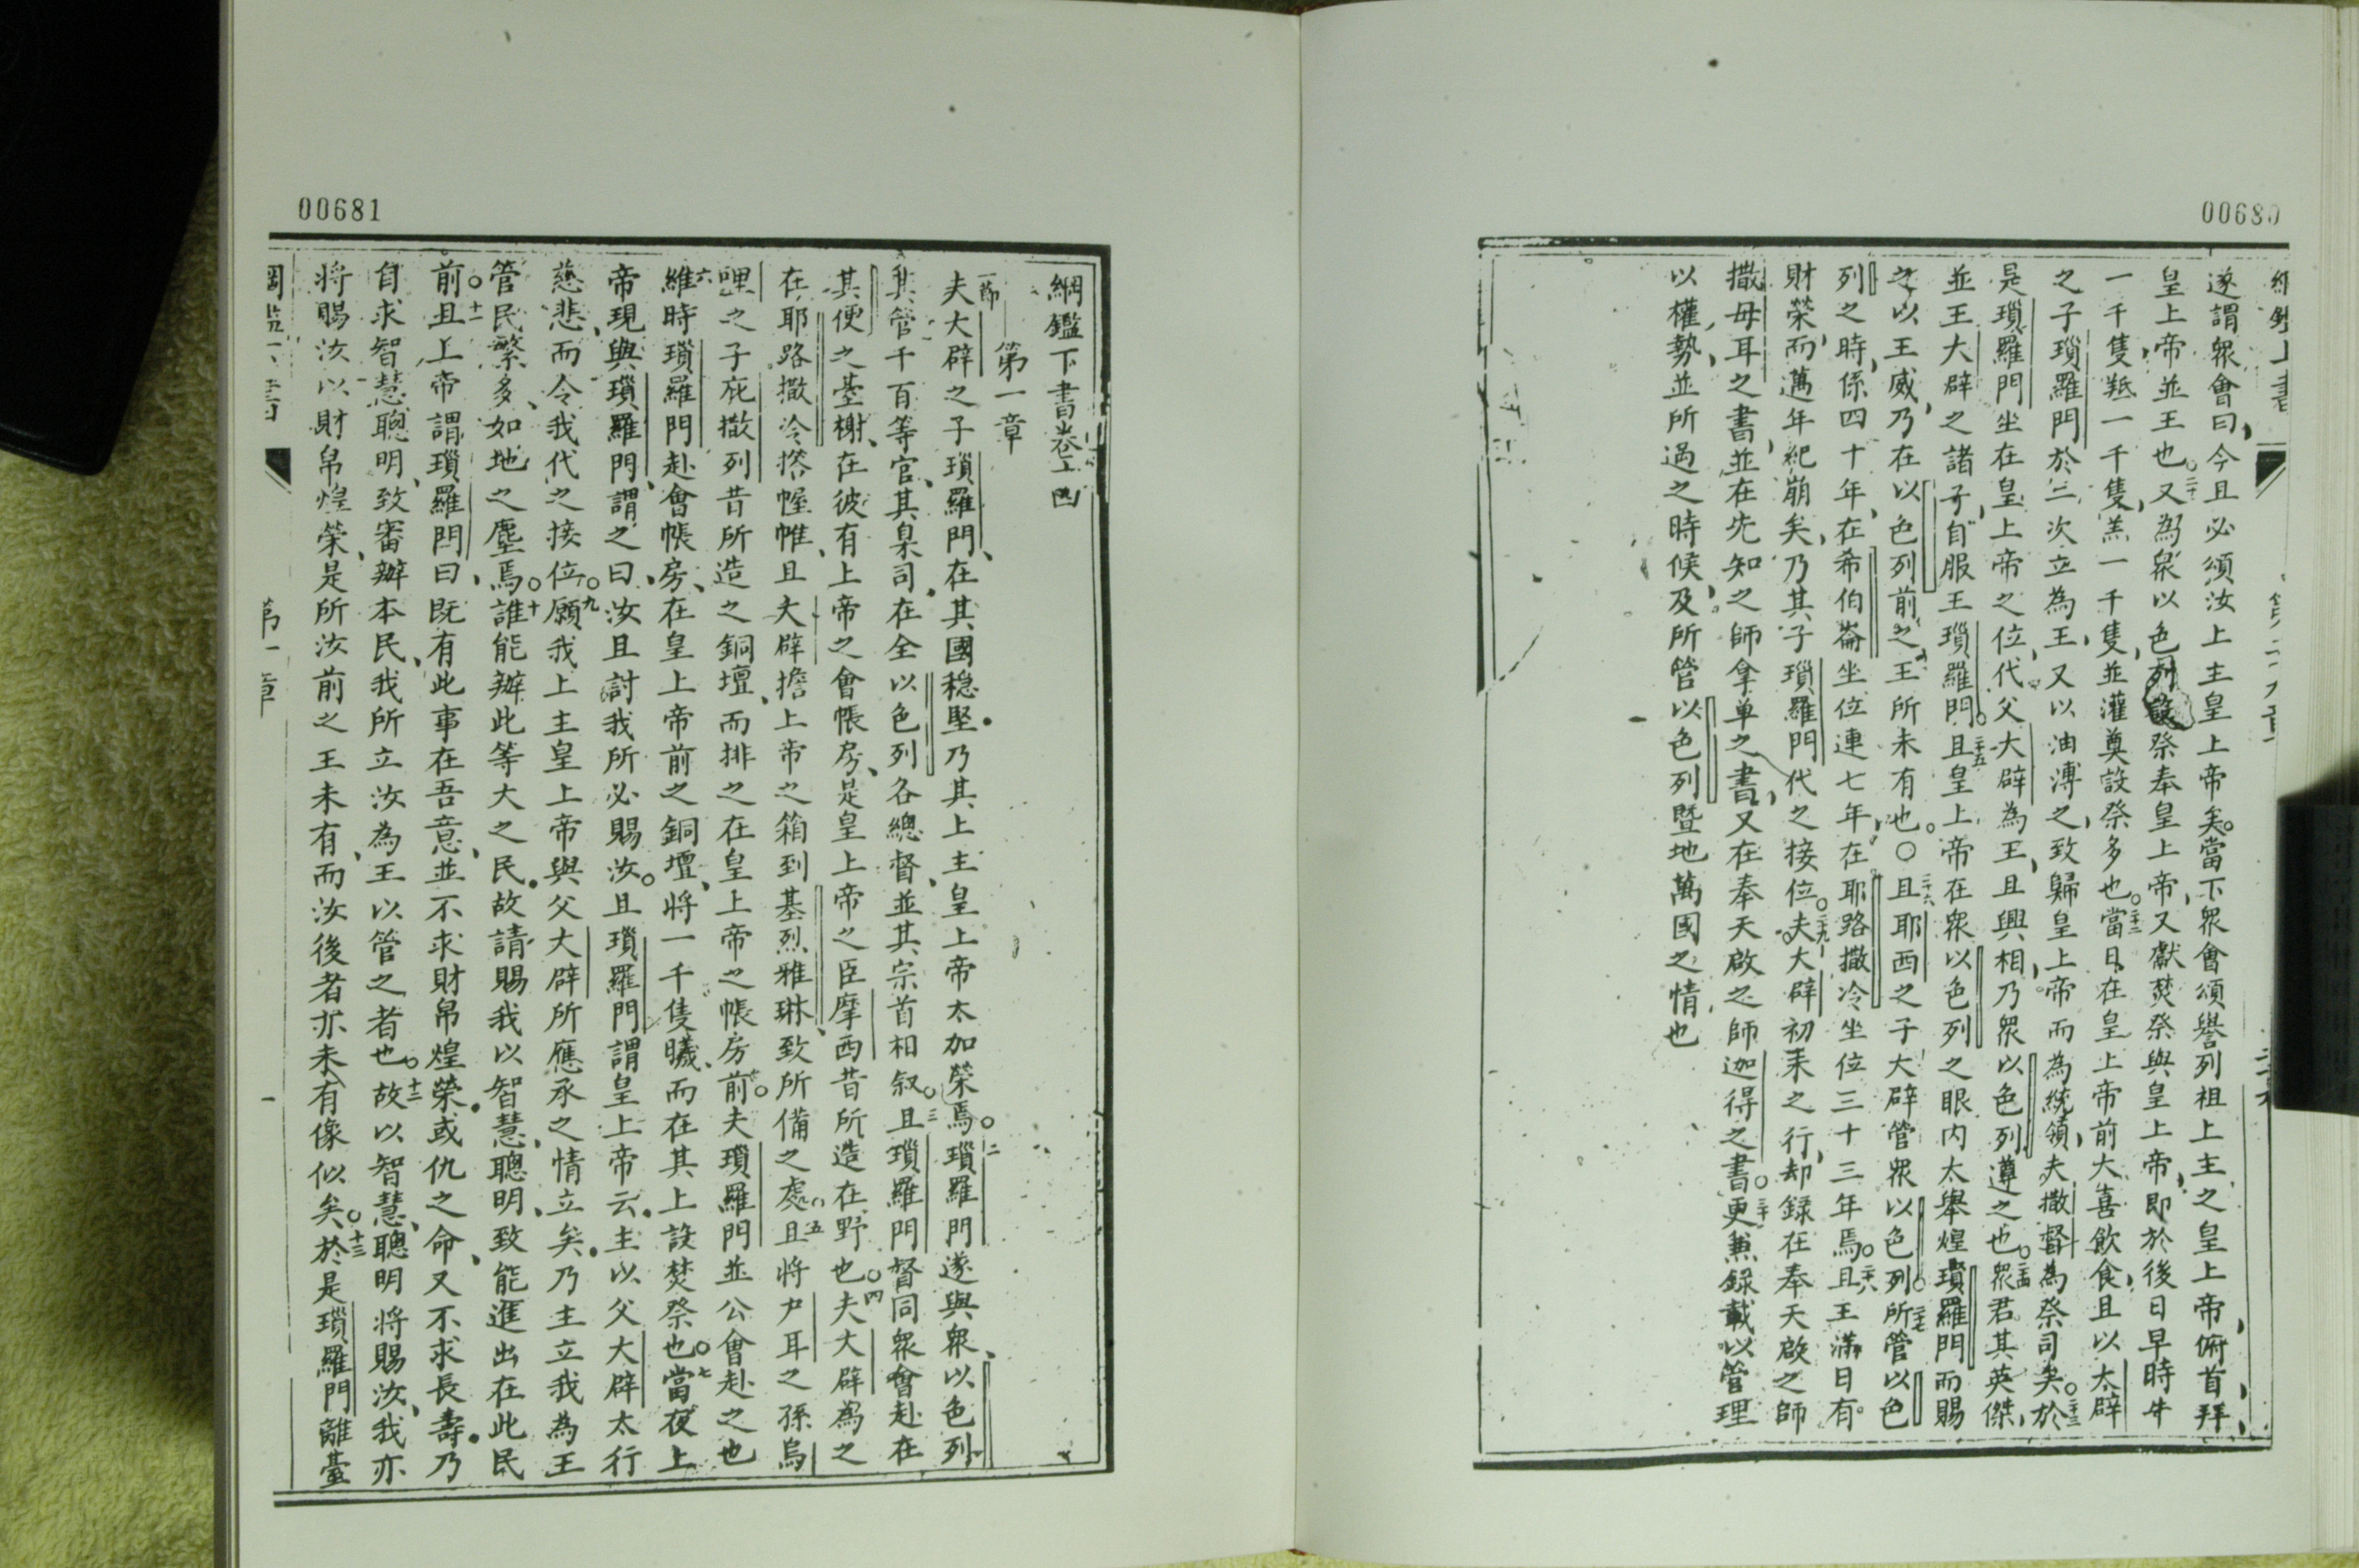 00680
綱鑑上書
遂謂衆會曰今且必頌汝上主皇上帝矣當下衆會頌譽列祖上主之皇上帝俯首拜
皇上帝並王也二十一又為衆以色列設祭奉皇上帝又獻焚祭與皇上帝即於後日早時牛
一千隻羝一千隻羔一千隻並灌奠設祭多也二十二當日在皇上帝前大喜飲食且以大辟
之子瑣羅門於二次立為王又以油溥之致歸皇上帝而為統領夫撒督為祭司矣二十三於
是瑣羅門坐在皇上帝之位代父大辟為王且興相乃衆以色列遵之也二十四衆君其英傑
並王大辟之諸子自服王瑣羅門二十五且皇上帝在衆以色列之眼內太舉煌瑣羅門而賜
之以王威乃在以色列前之王所未有也〇二十六且耶西之子大辟管衆以色列二十七所管以色
列之時係四十年在希伯崙坐位連七年在耶路撒冷坐位三十三年焉二十八且王滿日有
財榮而萬年紀崩矣乃其子瑣羅門代之接位二十九夫大辟初耒之行却録在奉天啟之師
撒母耳之書並在先知之師拿單之書又在奉天啟之師迦得之書三十更兼録載以管理
以權勢並所過之時候及所管以色列暨地萬國之情也
00681
綱鑑下書卷之四
第一章
一節夫大辟之子瑣羅門在其國穏堅乃其上主皇上帝太加榮焉二瑣羅門遂與衆以色列
其管千百等官其臬司在全以色列各總督並其宗首相叙三且瑣羅門督同衆會赴在
其便之臺榭在彼有上帝之會帳房是皇上帝之臣摩西昔所造在野也四夫大辟為之
在耶路撒冷搭幄帷且大辟擔上帝之箱到基烈雅琳致所備之處五且將户耳之孫烏
哩之子庇撒列昔所造之銅壇而排之在皇上帝之帳房前夫瑣羅門並公會赴之也
六維時瑣羅門赴會帳房在皇上帝前之銅壇將一千隻犧而在其上設焚祭也七當夜上
帝現與瑣羅門謂之曰汝且討我所必賜汝八且瑣羅門謂皇上帝云主以父大辟太行
慈悲而令我代之接位九願我上主皇上帝與父大辟所應承之情立矣乃主立我為王
管民繁多如地之塵焉十誰能辦此等大之民故請賜我以智慧聰明致能進出在此民
前十一且上帝謂瑣羅門曰既有此事在吾意並不求財帛煌榮或仇之命又不求長壽乃
自求智慧聰明致審辦本民我所立汝為王以管之者也十二故以智慧聰明將賜汝我亦
將賜汝以財帛煌榮是所汝前之王未有而汝後者亦未有像似矣十三於是瑣羅門離臺
綱鑑下書 第一章 一